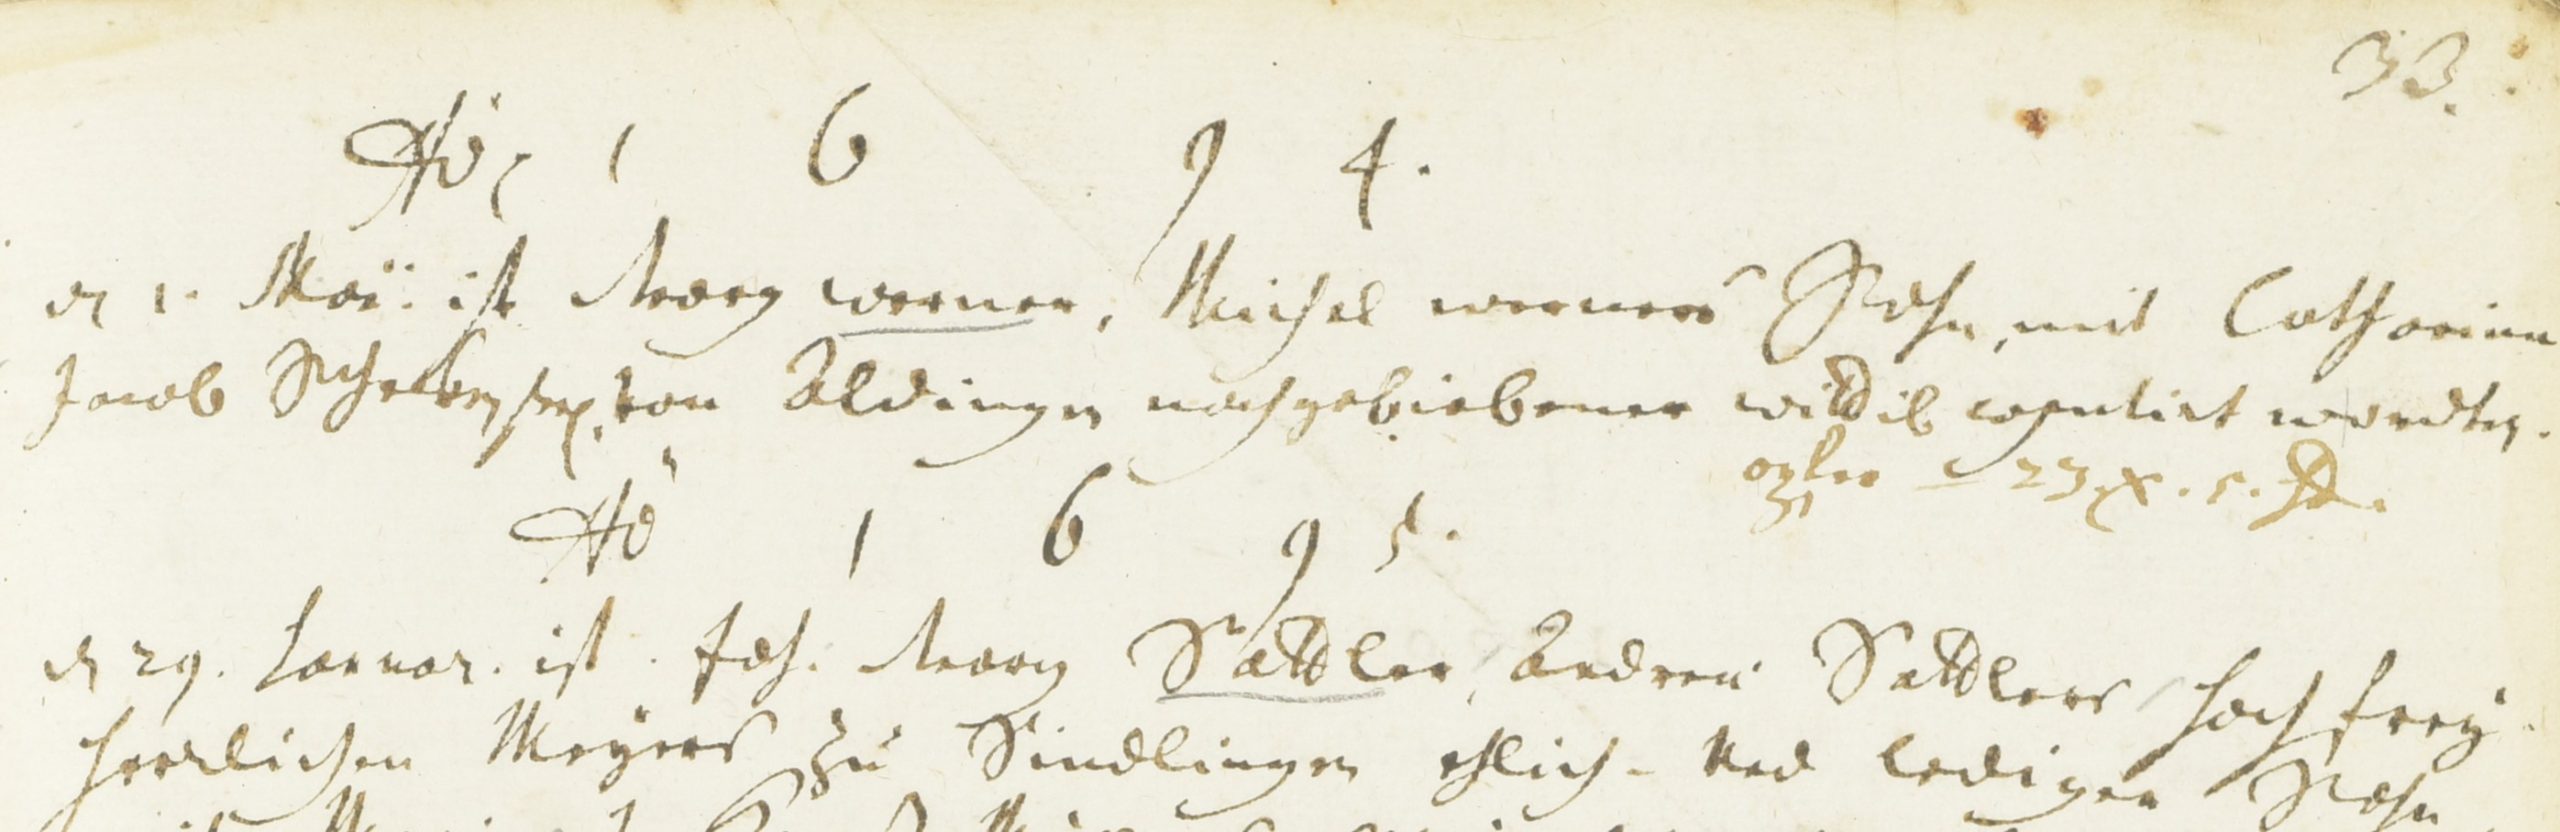 33.
Aō 1 6 9 4.
dn 1. Maÿ. ist Georg Werner, Michel Werners Sohn, mit Catharina
Jacob von Aldingen nachgebliebener wittib copulirt worden.
Aō 1 6 9 5.
dn 29. Januar. ist Joh. Georg Sattler, Andreä Sattlers Hochfrey
herrlichen Meÿers zu Sindlingen ehlich- und lediger Sohn